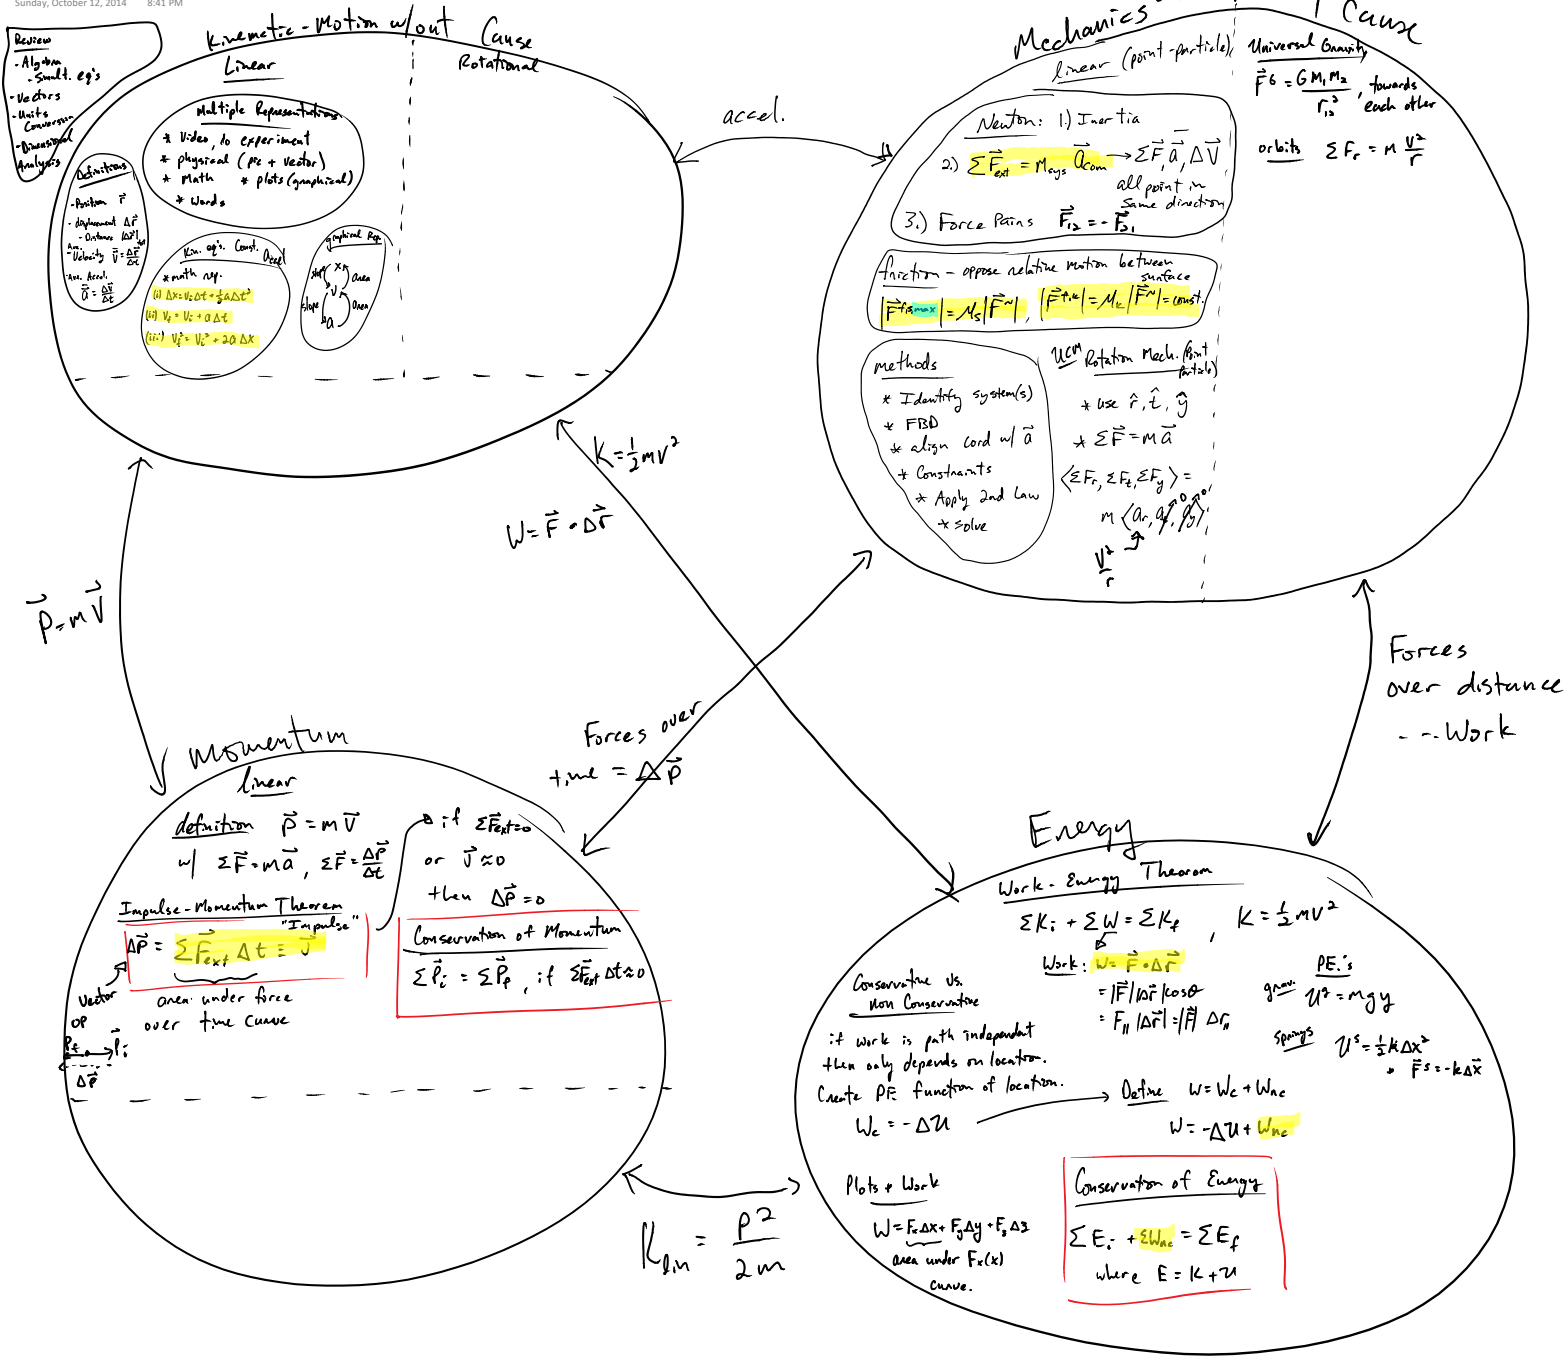 Sunday, October 12, 2014 8:41 PM
Review
- Algebra
- Smult. eq's
- Vectors
- Units
Conversion
- Dimensional
Analysis
Kinematic - Motion w/out Cause
Linear
Rotational
Multiple Representations
* Video, do experiment
* physical (pic + vector)
* Math * plots (graphical)
* Words
Definitions
- Position r⃗
- displacement Δr⃗
- Distance |Δr⃗|
Ave. Velocity v⃗ = Δr⃗/Δt
Ave. Accel.
a⃗ = Δv⃗/Δt
Kin. eq's. Const. accel
* math rep.
(i) Δx = Vᵢ Δt + ½ a Δt²
(ii) V_f = Vᵢ + a Δt
(iii) V_f² = Vᵢ² + 2a Δx
graphical Rep.
slope x area
v
slope a area
accel.
Mechanics
Cause
linear (point-particle)
Newton: 1.) Inertia
2.) ΣF⃗_ext = M_sys a⃗_com → ΣF⃗, a⃗, ΔV⃗
all point in
same direction
3.) Force Pairs F⃗₁₂ = - F⃗₂₁
friction - oppose relative motion between
surface
|F⃗^fs,max| = μs |F⃗^N|, |F⃗^f,k| = μk |F⃗^N| = const.
methods
* Identify system(s)
* FBD
* align cord w/ a⃗
* Constraints
* Apply 2nd Law
* solve
UCM Rotation Mech. (Point
particle)
* use r̂, t̂, ŷ
* ΣF⃗ = m a⃗
⟨ΣF_r, ΣF_t, ΣF_y⟩ =
m ⟨a_r, a_t, a_y⟩
0 0
V²/r
Universal Gravity
F⃗^G = G M₁ M₂ / r₁₂², towards
each other
orbits ΣF_r = M V²/r
K = ½ mv²
W = F⃗ • Δr⃗
P⃗ = m V⃗
Forces over
time = ΔP⃗
Forces
over distance
--- Work
Momentum
linear
definition P⃗ = m V⃗
w/ ΣF⃗ = m a⃗, ΣF⃗ = ΔP⃗/Δt
Impulse-Momentum Theorem
"Impulse"
ΔP⃗ = ΣF⃗_ext Δt ≡ J⃗
area under force
over time curve
Vector
OP
P_f Pᵢ
ΔP⃗
if ΣF⃗ext = 0
or J⃗ ≈ 0
then ΔP⃗ = 0
Conservation of Momentum
ΣP⃗ᵢ = ΣP⃗_f, if ΣF⃗ext Δt ≈ 0
K_lin = P²/2m
Energy
Work - Energy Theorem
ΣKᵢ + ΣW = ΣK_f, K = ½ mv²
Work: W = F⃗ • Δr⃗
= |F⃗| |Δr⃗| cosθ
= F_∥ |Δr⃗| = |F⃗| Δr_∥
PE.'s
grav. U^g = mgy
springs U^s = ½ k Δx²
• F⃗^s = -k Δx⃗
Conservative vs.
non Conservative
if work is path independent
then only depends on location.
Create PE function of location.
W_c = -ΔU
Define W = W_c + W_nc
W = -ΔU + W_nc
Plots + Work
W = F_x Δx + F_y Δy + F_z Δz
area under F_x(x)
curve.
Conservation of Energy
ΣEᵢ + ΣW_nc = ΣE_f
where E = K + U